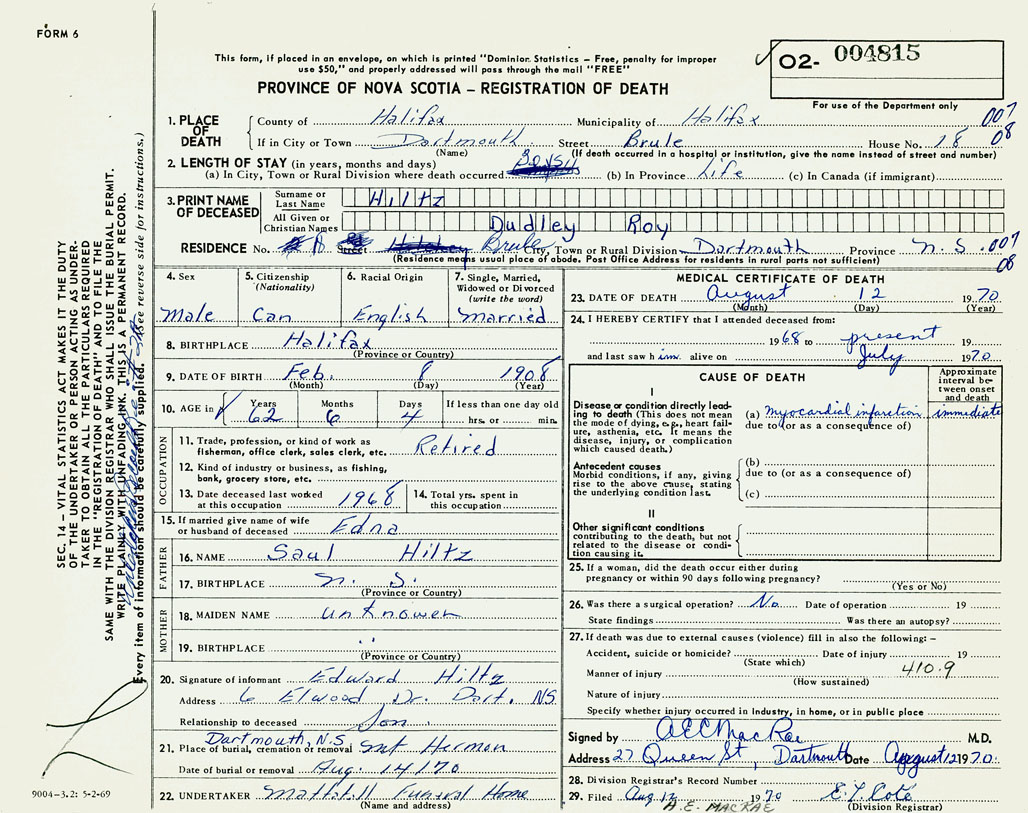 FORM 6
This form, if placed in an envelope, on which is printed "Dominion Statistics – Free, penalty for improper
use $50," and properly addressed will pass through the mail "FREE"
O2- 004815
PROVINCE OF NOVA SCOTIA – REGISTRATION OF DEATH
For use of the Department only
1. PLACE OF DEATH
County of Halifax Municipality of Halifax 007
If in City or Town Dartmouth Street Brule House No. 18 08
(Name) (If death occurred in a hospital or institution, give the name instead of street and number)
2. LENGTH OF STAY (in years, months and days)
(a) In City, Town or Rural Division where death occurred (b) In Province Life (c) In Canada (if immigrant)
3. PRINT NAME OF DECEASED
Surname or Last Name Hiltz
All Given or Christian Names Dudley Roy
RESIDENCE No. Street Brule City, Town or Rural Division Dartmouth Province N.S. 007
(Residence means usual place of abode. Post Office Address for residents in rural parts not sufficient) 08
4. Sex
Male
5. Citizenship
(Nationality)
Can
6. Racial Origin
English
7. Single, Married,
Widowed or Divorced
(write the word)
Married
8. BIRTHPLACE Halifax
(Province or Country)
9. DATE OF BIRTH Feb. 8 1908
(Month) (Day) (Year)
10. AGE in Years Months Days If less than one day old
62 6 4 hrs. or min.
OCCUPATION
11. Trade, profession, or kind of work as
fisherman, office clerk, sales clerk, etc. Retired
12. Kind of industry or business, as fishing,
bank, grocery store, etc.
13. Date deceased last worked
at this occupation 1968
14. Total yrs. spent in
this occupation
15. If married give name of wife
or husband of deceased Edna
FATHER
16. NAME Saul Hiltz
17. BIRTHPLACE N. S.
(Province or Country)
MOTHER
18. MAIDEN NAME unknowen
19. BIRTHPLACE " "
(Province or Country)
20. Signature of informant Edward Hiltz
Address 6 Elwood Dr. Dart. NS
Relationship to deceased Son
Dartmouth, N.S
21. Place of burial, cremation or removal Mt Hermon
Date of burial or removal Aug. 14/70
22. UNDERTAKER Mattatall Funeral Home
(Name and address)
MEDICAL CERTIFICATE OF DEATH
23. DATE OF DEATH August 12 1970
(Month) (Day) (Year)
24. I HEREBY CERTIFY that I attended deceased from:
1968 to present 19
and last saw him alive on July 1970
CAUSE OF DEATH
Approximate
interval be-
tween onset
and death
I
Disease or condition directly lead-
ing to death (This does not mean
the mode of dying, e.g., heart fail-
ure, asthenia, etc. It means the
disease, injury, or complication
which caused death.)
(a) myocardial infarction immediate
due to (or as a consequence of)
Antecedent causes
Morbid conditions, if any, giving
rise to the above cause, stating
the underlying condition last.
(b)
due to (or as a consequence of)
(c)
II
Other significant conditions
contributing to the death, but not
related to the disease or condi-
tion causing it.
25. If a woman, did the death occur either during
pregnancy or within 90 days following pregnancy?
(Yes or No)
26. Was there a surgical operation? No Date of operation 19
State findings Was there an autopsy?
27. If death was due to external causes (violence) fill in also the following: –
Accident, suicide or homicide? Date of injury 19
(State which)
Manner of injury 410.9
(How sustained)
Nature of injury
Specify whether injury occurred in Industry, in home, or in public place
Signed by AEC MacRae M.D.
Address 27 Queen St, Dartmouth Date August 12 1970
28. Division Registrar's Record Number
29. Filed Aug 12 1970
A.E. MACRAE (Division Registrar)
SEC. 14 – VITAL STATISTICS ACT MAKES IT THE DUTY
OF THE UNDERTAKER OR PERSON ACTING AS UNDER-
TAKER TO OBTAIN ALL THE PARTICULARS REQUIRED
IN THE "REGISTRATION OF DEATH" AND TO FILE THE
SAME WITH THE DIVISION REGISTRAR WHO SHALL ISSUE THE BURIAL PERMIT.
WRITE PLAINLY WITH UNFADING INK. THIS IS A PERMANENT RECORD.
Every item of information should be carefully supplied. (See reverse side for instructions.)
9004-3.2: 5-2-69